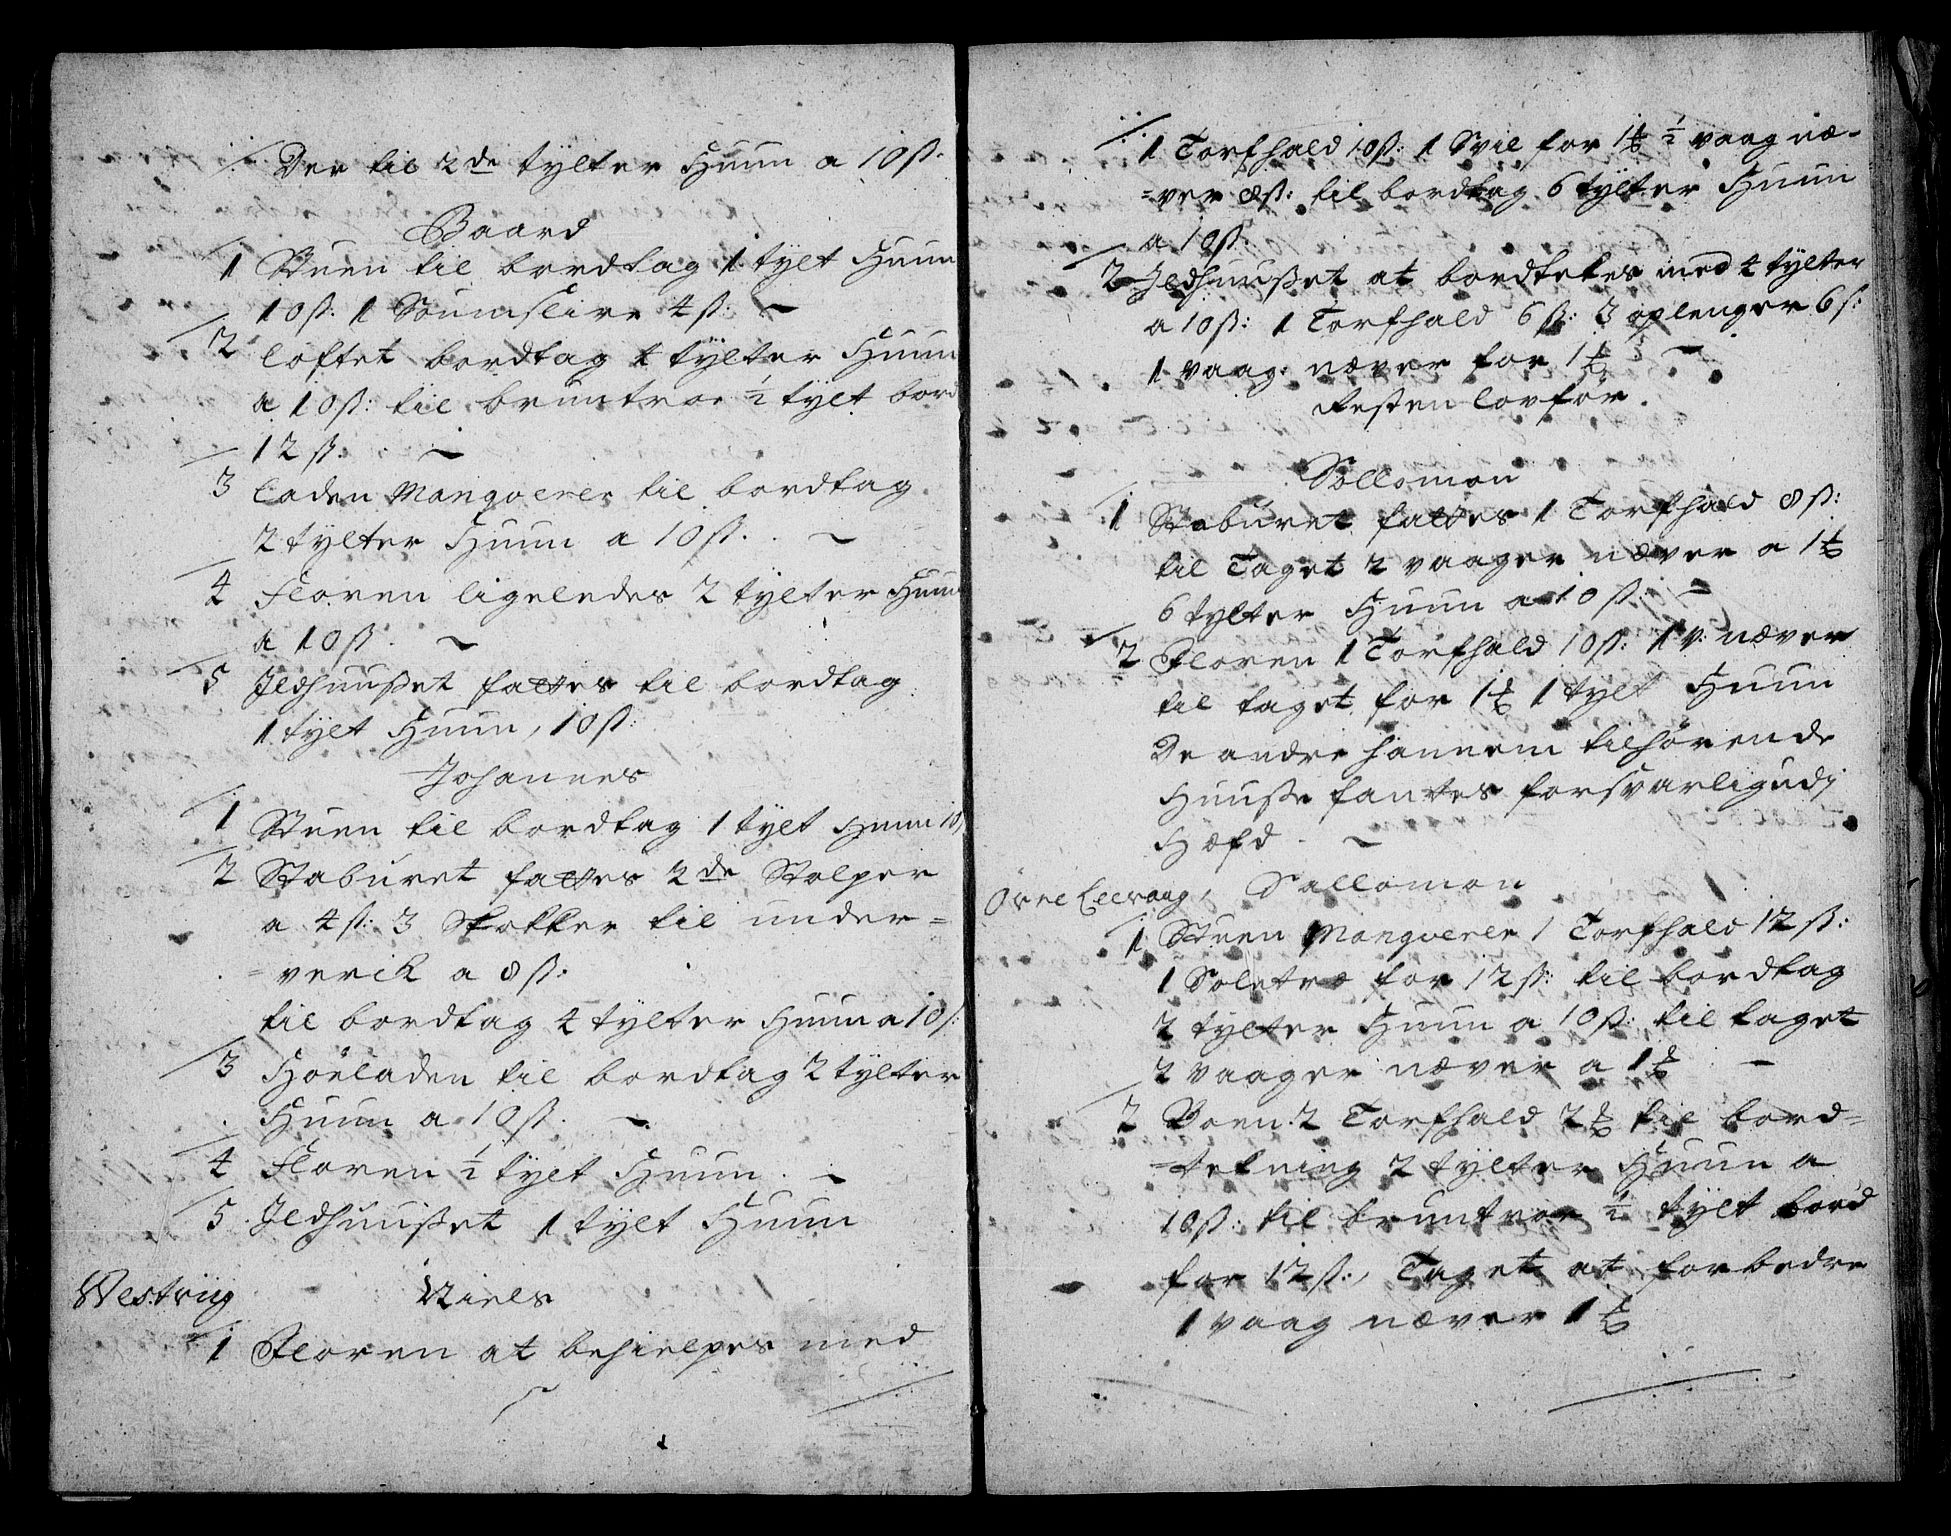 Der til 2de tylter Huun a 10 ß.
Baard
1 Stuen til bordtag 1 tylt Huun
10 ß: 1 Soumsleire 4 ß:
2 loftet bordtag 4 tylter Huun
a 10 ß: til bruntroe ½ tylt bord
12 ß.
3 laden Manqverer til bordtag
2 tylter Huun a 10 ß.
4 Floren ligeledes 2 tylter Huun
a 10 ß.
5 Jldhuußet fattes til bordtag
1 tylt Huun, 10 ß:
Johannes
1 Stuen til bordtag 1 tylt Huun 10 ß
2 Staburet fattes 2de Stolper
a 4 ß: 3 Stokker til under=
=verck a 8 ß:
til bordtag 4 tylter Huun a 10 ß:
3 Höeladen til bordtag 2 tylter
Huun a 10 ß.
4 Floren ½ tylt Huun.
5 Jldhuußet 1 tylt Huun
Westriig Niels
1 Floren at behielpes med
1 Torfhald 10 ß: 1 Svil for 1 ½ vaag næ-
=ver 8 ß: til bordtag 6 tylter Huun
a 10 ß:
2 Jldhuußet at bordtekes med 4 tylter
a 10 ß: 1 Torfhald 6 ß: 3 oplenger 6 ß:
1 vaag næver for 1
Resten lovför.
Sollomon
1 Staburet fattes 1 Torfhald 8 ß:
til Taget 2 vaager næver a 1
6 tylter Huun a 10 ß.
2 Floren 1 Torfhald 10 ß: 1 v: næver
til taget for 1 1 tylt Huun
De andre hannem tilhörende
Huuße fantes forsvarlig udj
Hæfd.
Sallomon
1 Stuen Manqverer 1 Torfhald 12 ß:
1 Soletræ for 12 ß: til bordtag
2 tylter Huun a 10 ß: til taget
2 vaager næver a 1
2 Boen: 2 Torfhald 2 til bord=
=tekning 2 tylter Huun a
10 ß: til bruntroe ½ tylt bord
for 12 ß:, Taget at forbedre
1 vaag næver 1